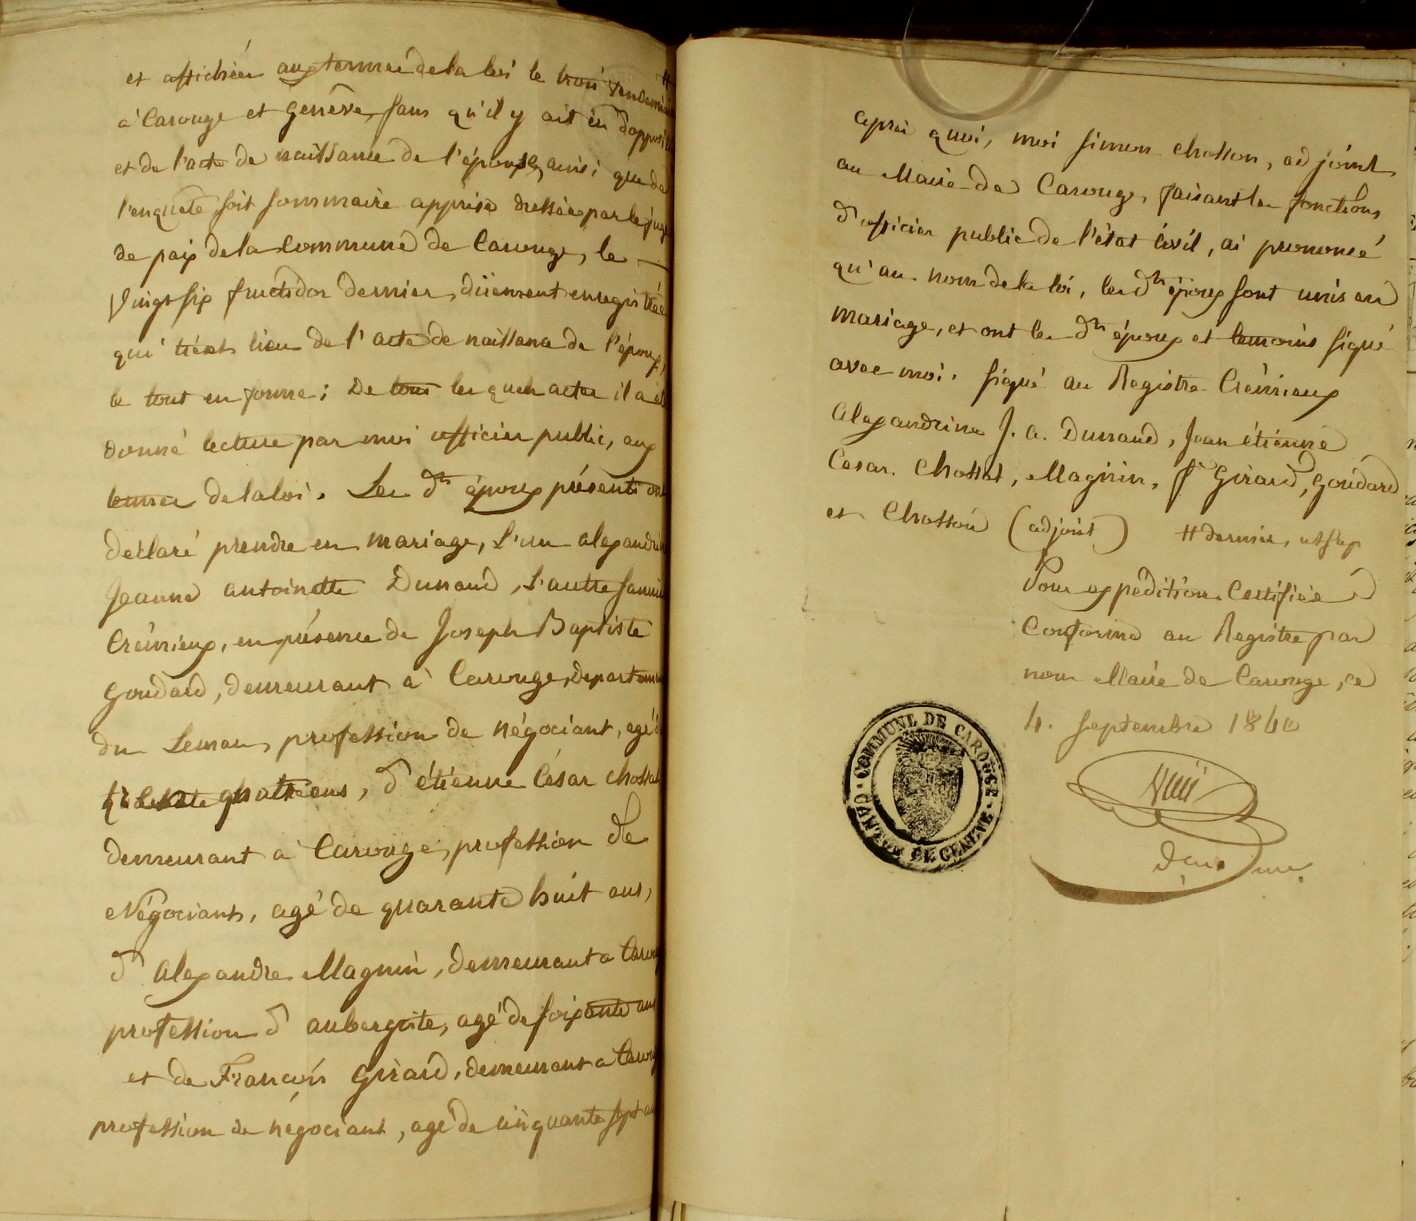 et affichées aux termes de la loi le trois vendémi
à Carouge et Genève, sans qu'il y ait eu d'opposi
et de l'acte de naissance de l'épouse, ainsi que de
l'enquête soit sommaire apprise dressée par le juge
de paix de la Commune de Carouge, le —
vingt six fructidor dernier, düement enregistrée
qui tient lieu de l'acte de naissance de l'époux,
le tout en forme; De tous les quels actes il a é
donné lecture par moi officier public, aux
termes de la loi. Les dts époux présents ont
déclaré prendre en mariage, L'un alexandri
Jeanne antoinette Dunand, L'autre
Crévrieux, en présence de Joseph Baptiste
Goudard, demeurant à Carouge, departeme
du Leman, profession de négociant, agé d
quatre ans, d'étienne César Chossat
demeurant à Carouge, profession de
Négociant, agé de quarante huit ans,
d'Alexandre Magnin, demeurant a Carou
profession d'aubergiste, agé de soixante ans
et de François Girard, demeurant a Carou
profession de négociant, agé de cinquante sept a
après quoi, moi simon chosson, adjoint
au Maire de Carouge, faisant les fonctions
d'officier public de l'état Civil, ai prononcé
qu'au nom de la loi, les dts époux sont unis en
mariage, et ont les dts époux et temoins signé
avec moi. signé au Registre Crévrieux
Alexandrine J. a. Dunand, Jean étienne
Cesar Chossat, Magnin, fs Girard, Goudard
et Chosson (adjoint) # dernier, et
Pour expédition Certifiée
Conforme au Registre par
nous Maire de Carouge, ce
4. septembre 1860
COMMUNE DE CAROUGE
CANTON DE GENEVE